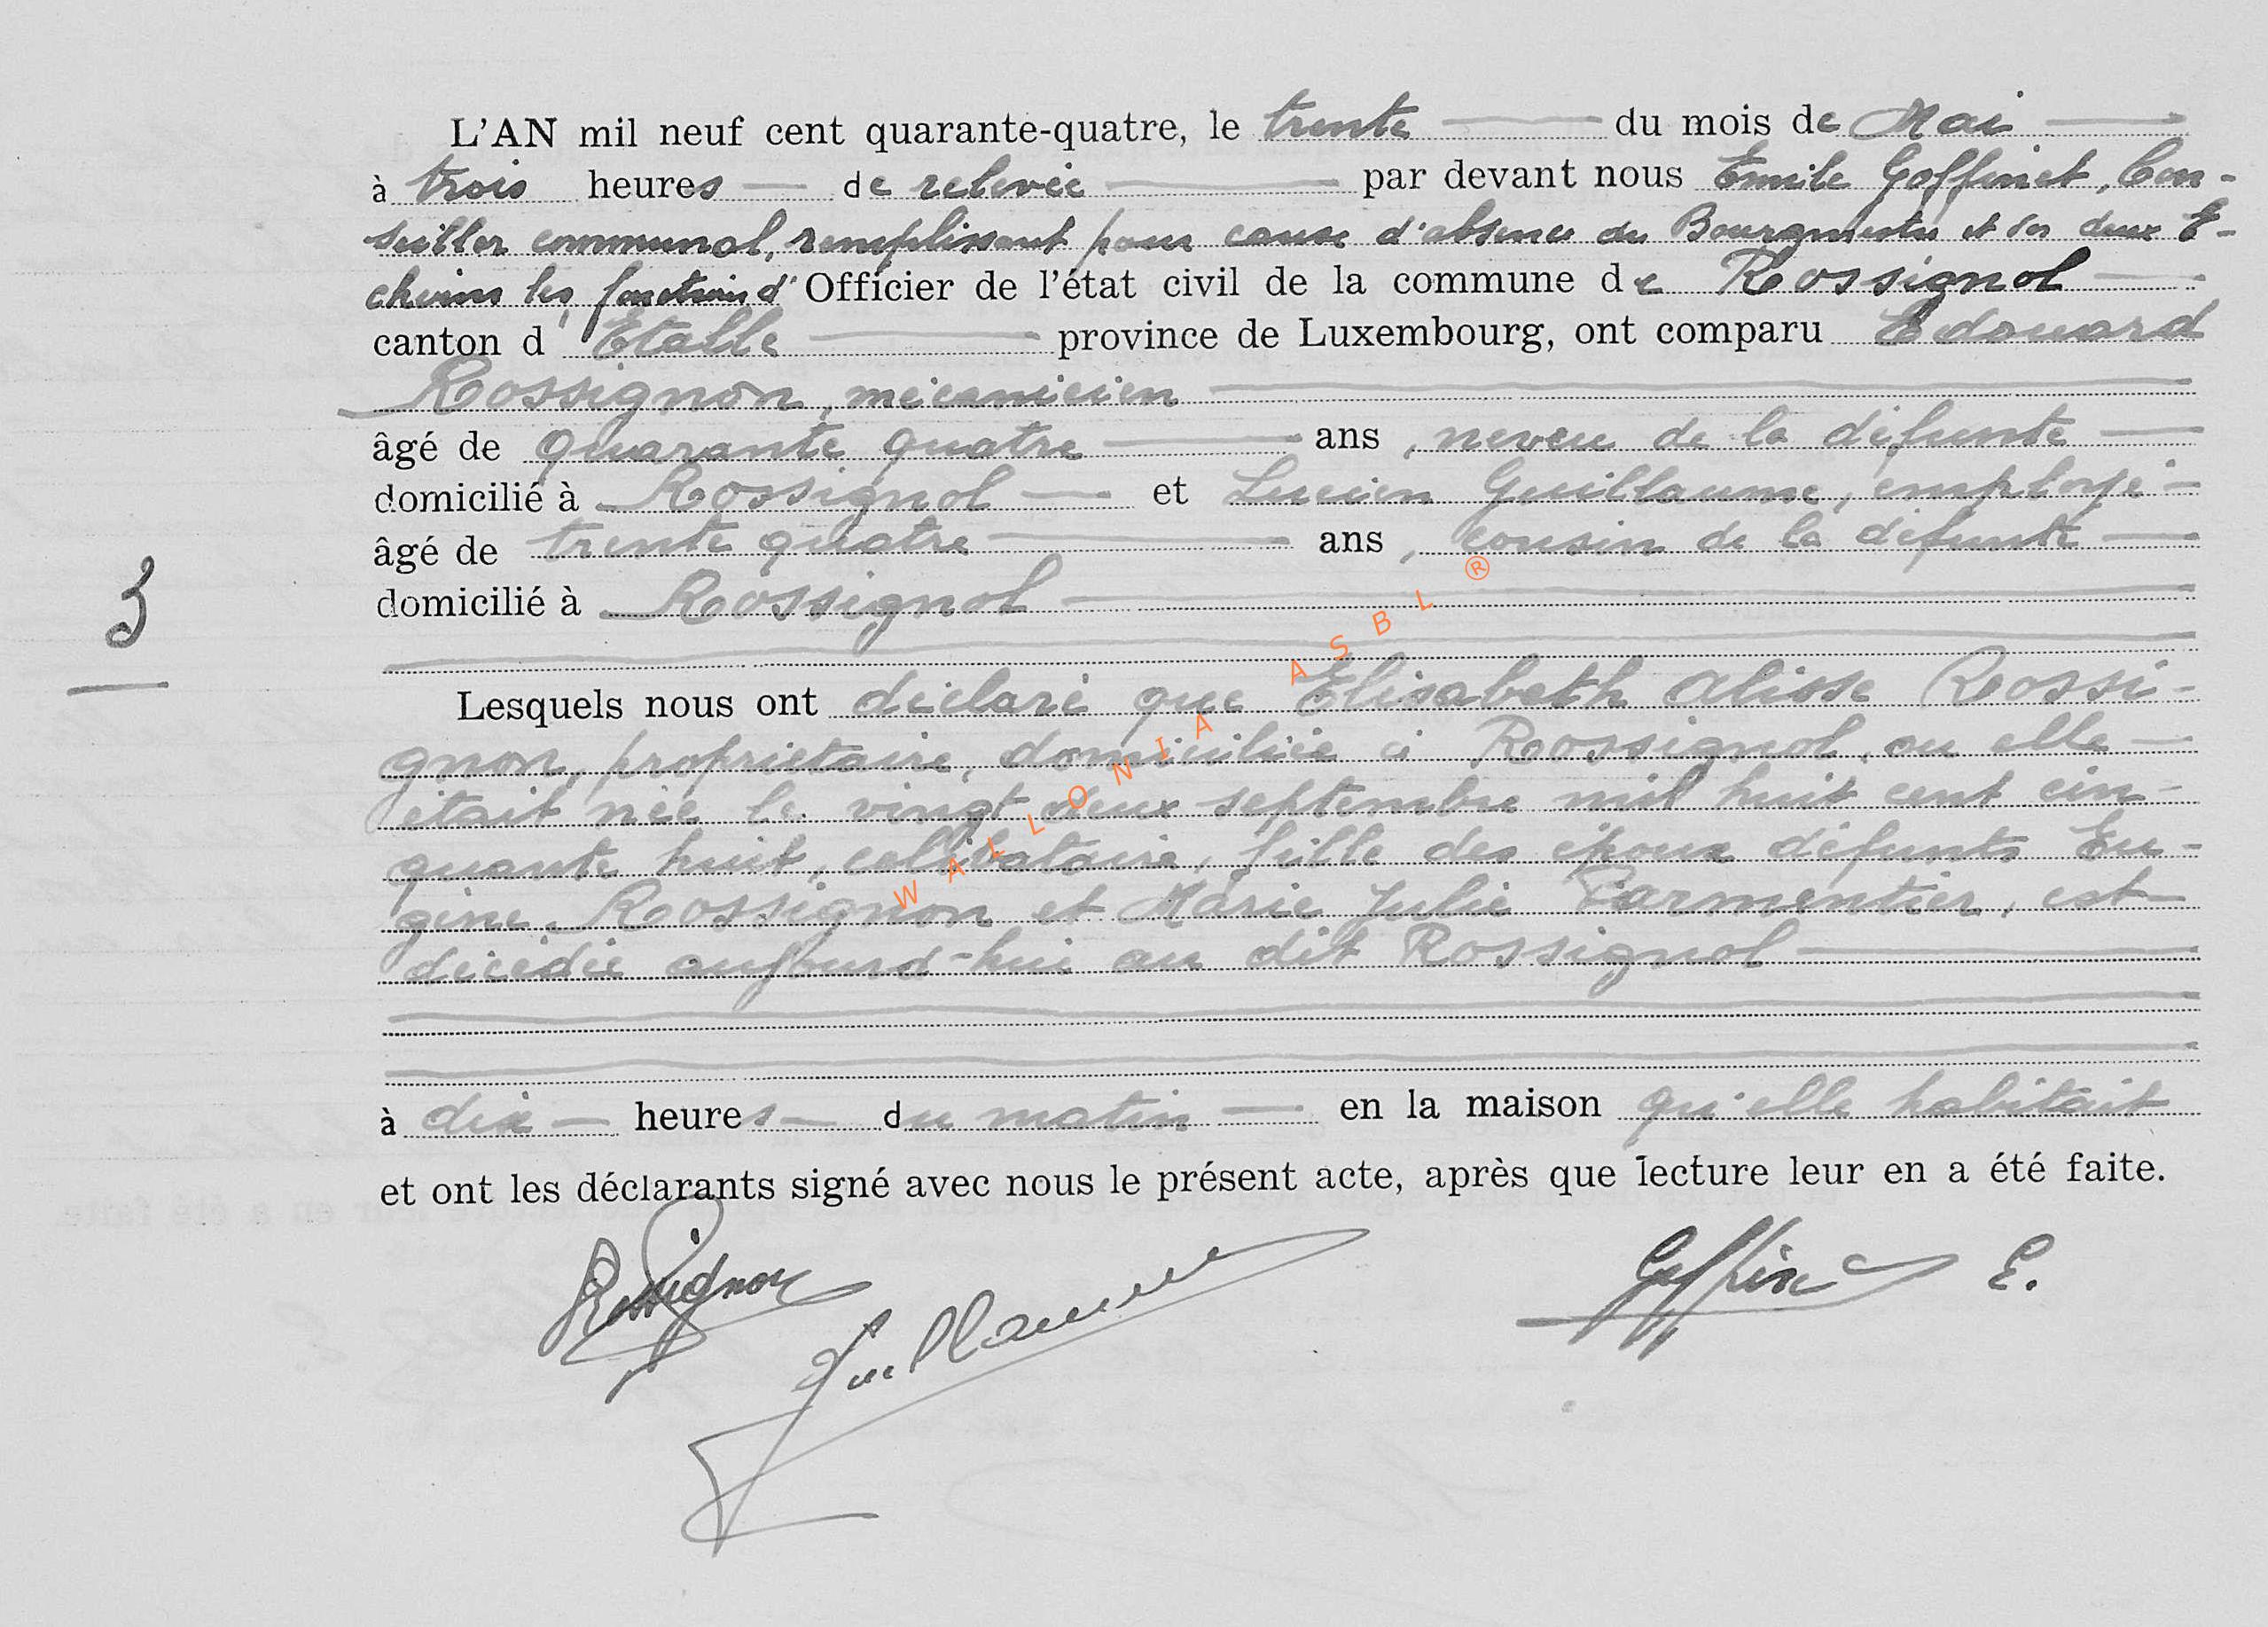 L'AN mil neuf cent quarante-quatre, le trente du mois de Mai
à trois heures de relevée par devant nous Emile Goffinet, Con-
seiller communal, remplissant pour cause d'absence du Bourgmestre et des deux E-
chevins les fonctions d'Officier de l'état civil de la commune de Rossignol
canton d'Etalle province de Luxembourg, ont comparu Edouard
Rossignon, mécanicien
âgé de quarante quatre ans, neveu de la défunte
domicilié à Rossignol et Lucien Guillaume, employé
âgé de trente quatre ans, cousin de la défunte
domicilié à Rossignol
3
Lesquels nous ont déclaré que Elisabeth Alisse Rossi-
gnon, propriétaire, domiciliée à Rossignol, ou elle
était née le vingt deux septembre mil huit cent cin-
quante huit, celibataire, fille des époux défunts Eu-
gène Rossignon et Marie Julie Parmentier, est
décédée aujourd-hui au dit Rossignol
à dix heures du matin en la maison qu'elle habitait
et ont les déclarants signé avec nous le présent acte, après que lecture leur en a été faite.
Rossignon
Guillaume
Goffinet E.
WALLONIA ASBL ®